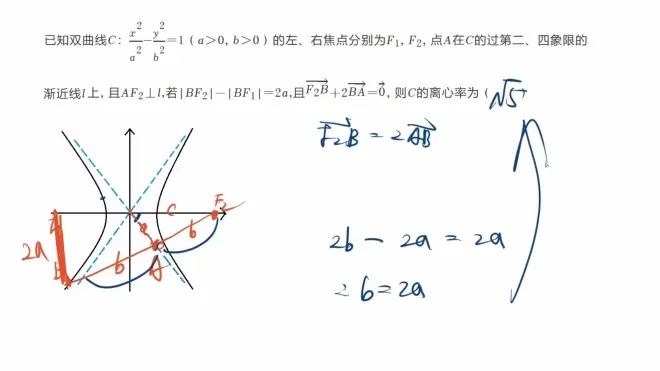 已知双曲线C：x²/a²-y²/b²=1（a>0，b>0）的左、右焦点分别为F₁，F₂，点A在C的过第二、四象限的
渐近线l上，且AF₂⊥l，若|BF₂|-|BF₁|=2a，且F₂B→+2BA→=0→，则C的离心率为（ √5
F₂B→ = 2AB→
F₂
C
a
b
2a
b
A
B
2b - 2a = 2a
∴ b = 2a